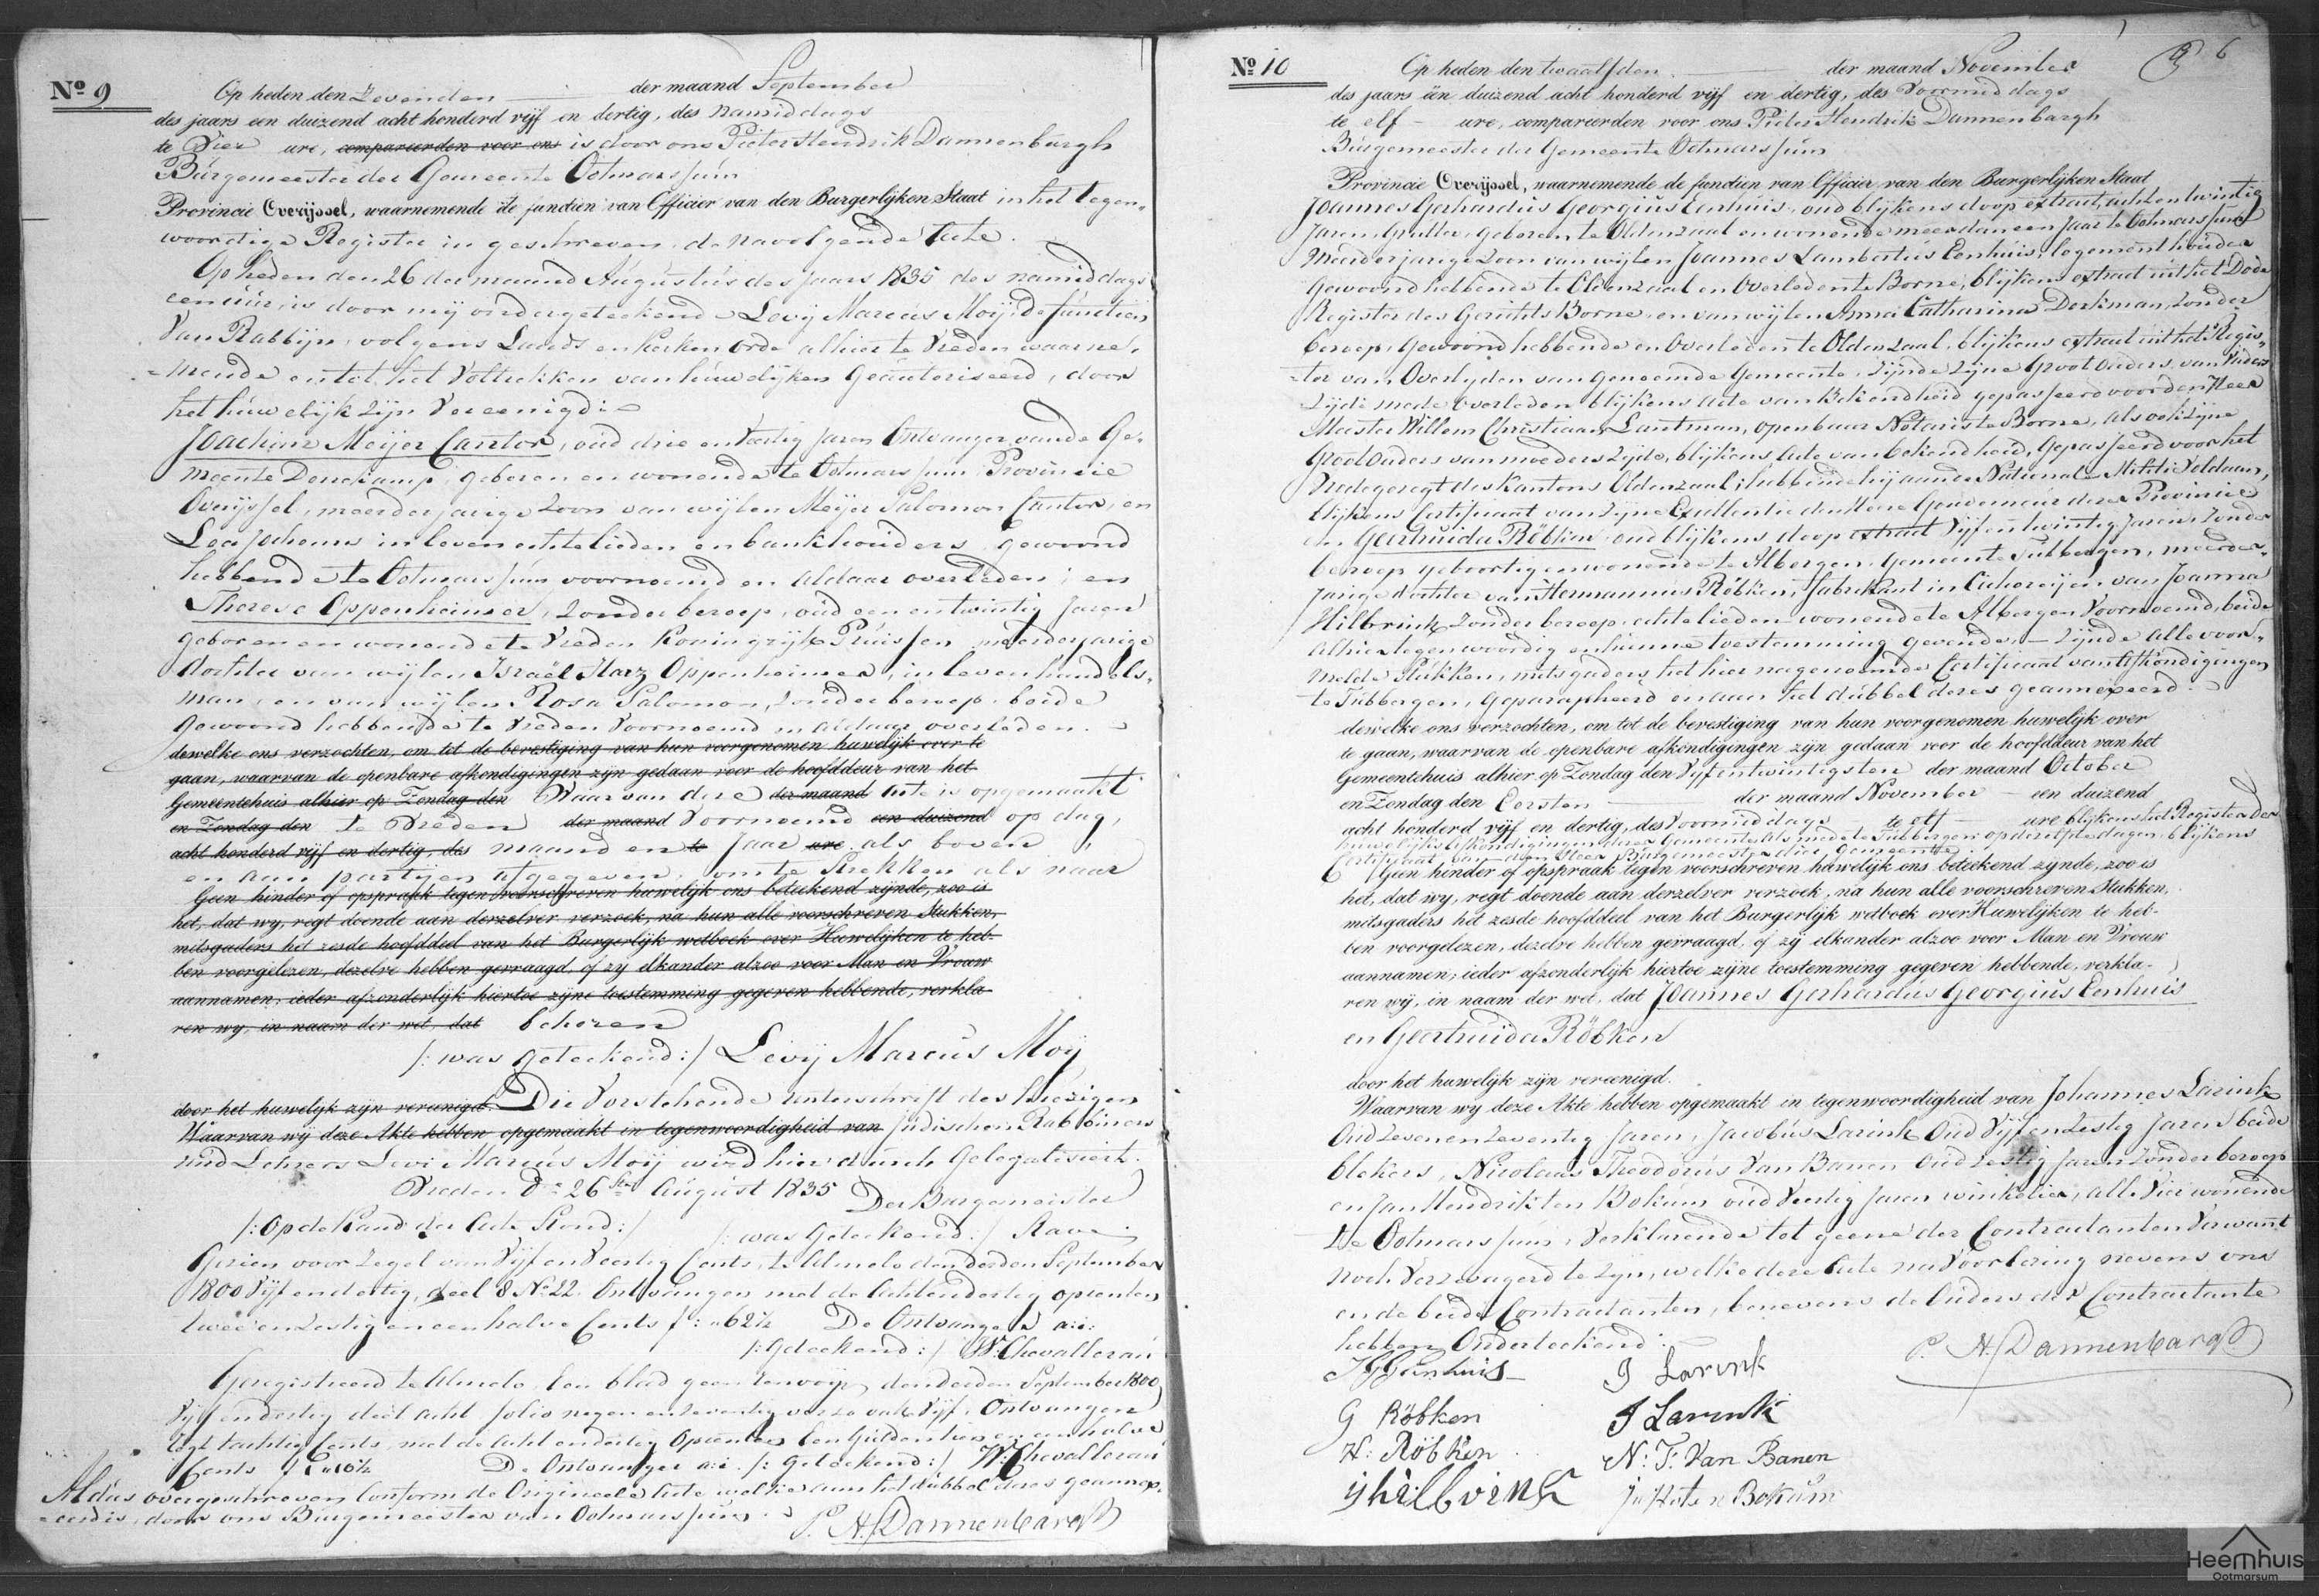 Nº 9
Op heden den Zevenden der maand September
des jaars een duizend acht honderd vijf en dertig, des namiddags
te Vier ure, compareerden voor ons is door ons Pieter Hendrik Dannenbargh
Burgemeester der Gemeente Ootmarssum
Provincie Overijssel, waarnemende de functien van Officier van den Burgerlijken Staat in het tegen-
woordige Register in geschreven de navolgende Acte.
Op heden den 26 der maand Augustus des Jaars 1835 des namiddags
een uur, is door mij ondergeteekende Levij Marcus Moij, de functien
Van Rabbijn volgens Lands en Kerken Orde alhier te Vreden waarne-
mende en tot het Voltrekken van huwelijken Geautoriseerd, door
het huwelijk zijn Vereenigd:
Joachim Meijer Cantor, oud drie en Veertig Jaren Ontvanger van de Ge-
meente Denekamp, geboren en wonende te Ootmarssum Provincie
Overijssel, meerderjarige Zoon van wijlen Meijer Salomon Cantor, en
Lea Jochems in leven echtelieden en bankhouders gewoond
hebbende te Ootmarssum voornoemd en aldaar overleden; en
Therese Oppenheimer, zonder beroep, oud een en twintig Jaren
geboren en wonende te Vreden Koningrijk Pruissen, meerderjarige
dochter van wijlen Israël Marz Oppenheimer, in leven handels-
man, en van wijlen Rosa Salomon, zonder beroep, beide
gewoond hebbende te Vreden Voornoemd en aldaar overleden.
dewelke ons verzochten, om tot de bevestiging van hun voorgenomen huwelijk over te
gaan, waarvan de openbare afkondigingen zijn gedaan voor de hoofddeur van het
Gemeentehuis alhier op Zondag den Waar van deze der maand Acte is opgemaakt
en Zondag den te Vreden der maand Voornoemd een duizend op dag,
acht honderd vijf en dertig, des maand en te Jaar ure als boven
en aan partijen afgegeven, om te Strekken als naar
Geen hinder of opspraak tegen voorschreven huwelijk ons beteekend zijnde, zoo is
het, dat wy, regt doende aan derzelver verzoek, na hun alle voorschreven Stukken,
mitsgaders het zesde hoofddeel van het Burgerlijk wetboek over Huwelijken te heb-
ben voorgelezen, dezelve hebben gevraagd, of zy elkander alzoo voor Man en Vrouw
aannamen; ieder afzonderlijk hiertoe zijne toestemming gegeven hebbende, verkla-
ren wy, in naam der wet, dat behoren
/: was geteekend :/ Levij Marcus Moij
door het huwelijk zijn vereenigd. Die Vorstehende Unterschrift des hiesigen
Waarvan wij deze Akte hebben opgemaakt in tegenwoordigheid van Judischen Rabbiners
und Lehrers Levi Marcus Moij wird hier durch Gelegalisiert.
Vreden den 26 sten August 1835 Der Burgemeister
/: Op de Rand der Acte Stond :/ /: was Geteekend :/ Rave
Gezien voor Zegel van Vijf en Veertig Cents, te Almelo den derden September
1800 Vijf en dertig, deel 8 No 22. Ontvangen met de Achtendertig opcenten
twee en Zestig en een halve Cents f : " 62½ De Ontvanger a: i:
/: Geteekend :/ W: Chevallerau
Geregistreerd te Almelo, Een blad geen renvoijen, den derden September 1800
Vijf en dertig deel acht folio negen en Zeventig verso vak Vijf. Ontvangen
Cents De Ontvanger a: i. /: Geteekend :/ W: Chevallerau
Aldus overgeschreven Conform de Origineele Acte welke aan het dubbel dezes geannex-
eerd is, door ons Burgemeester van Ootmarssum.
P. H. Dannenbargh
Nº 10
6
Op heden den twaalfden der maand November
des jaars één duizend acht honderd vijf en dertig, des Voormiddags
te elf ure, compareerden voor ons Pieter Hendrik Dannenbargh
Burgemeester der Gemeente Ootmarssum
Provincie Overijssel, waarnemende de functien van Officier van den Burgerlijken Staat
Joannes Gerhardus Georgius Eenhuis, oud blijkens doop extract, acht en twintig
Jaren, geboren te Oldenzaal en wonende meer dan een Jaar te Ootmarssum
Meerderjarige Zoon van wijlen Joannes Lambertus Eenhuis, logementhouder
Gewoond hebbende te Oldenzaal en Overleden te Borne, blijkens extract uit het Dode
Register des Gerichts Borne, en van wijlen Anna Catharina Derkman, zonder
beroep, Gewoond hebbende en Overleden te Oldenzaal, blijkens extract uit het Regis-
ter van Overlijden van genoemde Gemeente, zijnde Zijne Groot Ouders van Vaders
Zijde mede Overleden blijkens acte van Bekendheid gepasseerd voor den Heer
Meester Willem Christiaan Lantman, openbaar Notaris te Borne, als ook zijne
Groot Ouders van moeders Zijde, blijkens Acte van bekendheid, Gepasseerd voor het
Vredegeregt des Kantons Oldenzaal; hebbende hij aan de Nationale Militie Voldaan,
blijkens Certificaat van Zijne Excellentie den Heere Gouverneur dezer Provincie
en Geertruida Röbken oud blijkens doop extract Vijf en twintig Jaren, zonder
beroep geboortig en wonende te Albergen Gemeente Tubbergen, meerder-
jarige dochter van Hermannus Röbken, Fabrikant in Cichoreijen, van Joanna
Hilbrink, zonder beroep, echtelieden wonende te Albergen Voornoemd, beide
alhier tegenwoordig en hunne toestemming gevende, zijnde alle voor-
melde Stukken, mitsgaders het hier nagenoemde Certificaat van Afkondigingen
te Tubbergen, Geparapheerd en aan het dubbel dezes geannexeerd.
dewelke ons verzochten, om tot de bevestiging van hun voorgenomen huwelijk over
te gaan, waarvan de openbare afkondigingen zijn gedaan voor de hoofddeur van het
Gemeentehuis alhier op Zondag den Vyfentwintigsten der maand October
en Zondag den Eersten der maand November een duizend
acht honderd vijf en dertig, des Voormiddags te elf ure blijkens het Register der
huwelijks afkondigingen dezer Gemeente Als mede te Tubbergen op dezelfde dagen, blijkens
Certificaat van den Heer Burgemeester dier Gemeente
Geen hinder of opspraak tegen voorschreven huwelijk ons beteekend zijnde, zoo is
het, dat wy, regt doende aan derzelver verzoek, na hun alle voorschreven Stukken,
mitsgaders het zesde hoofddeel van het Burgerlijk wetboek over Huwelijken te heb-
ben voorgelezen, dezelve hebben gevraagd, of zy elkander alzoo voor Man en Vrouw
aannamen; ieder afzonderlijk hiertoe zijne toestemming gegeven hebbende, verkla-
ren wij, in naam der wet, dat Joannes Gerhardus Georgius Eenhuis
en Geertruida Röbken
door het huwelijk zijn vereenigd.
Waarvan wy deze Akte hebben opgemaakt in tegenwoordigheid van Johannes Larink
Oud Zeven en Zeventig Jaren, Jacobus Larink Oud Vijf en Zestig Jaren beide
blekers, Nicolaas Theodorus Van Banen Oud Zestig Jaren zonder beroep
en Jan Hendrik ten Bokum oud Veertig Jaren winkelier, alle Vier wonende
te Ootmarssum, Verklarende tot geene der Contractanten Verwant
noch Verzwagerd te zijn, welke deze Acte na Voorlezing nevens ons
en de beide Contractanten, benevens de Ouders der Contractante
hebben Onderteekend:
P. H. Dannenbargh
J G G Eenhuis
J Larink
G Röbken
J Larink
H: Röbken
N: T. Van Banen
j hilbrink
J H ten Bokum
Heemhuis
Ootmarsum